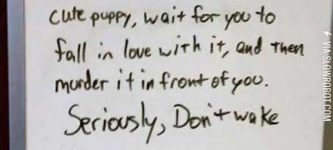 cute puppy, wait for you to
fall in love with it, and then
murder it in front of you.
Seriously, Don't wake
VIA SLOWROBOT.COM